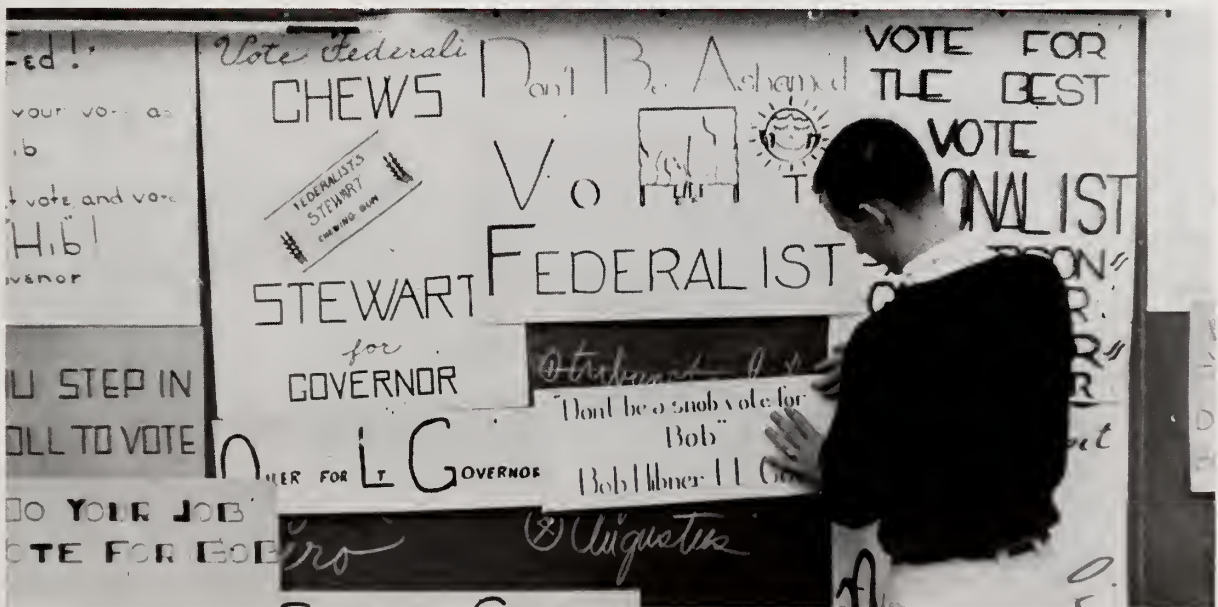 ed!
your vote as
ib
vote and vote
"Hib"!
vernor
U STEP IN
OLL TO VOTE
DO YOUR JOB
OTE FOR BOB
Vote Federali
CHEWS
FEDERALISTS
STEWART
CHEWING GUM
STEWART
for
GOVERNOR
FOR LT GOVERNOR
Don't Be Ashamed
Vo T
FEDERALIST
"Dont be a snob vote for
Bob"
Bob Hibner Lt Go
⑧ Augustus
VOTE FOR
THE BEST
VOTE
ONALIST
SON"
R
R"
R